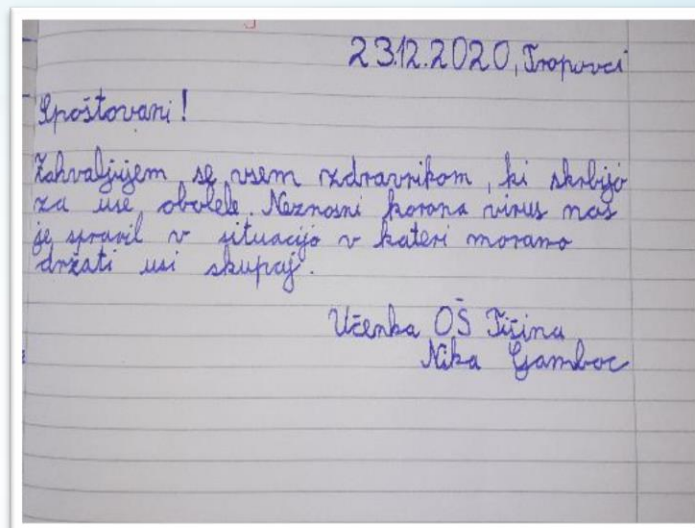 23.12.2020, Tropovci
Spoštovani!
Zahvaljujem se vsem zdravnikom, ki skrbijo
za use obolele. Neznosni korona virus nas
je spravil v situacijo v kateri moramo
držati usi skupaj.
Učenka OŠ Tišina
Nika Gomboc